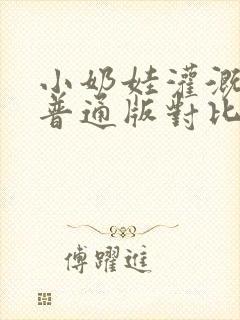 小奶娃灌溉
普通版對比
傅躍進